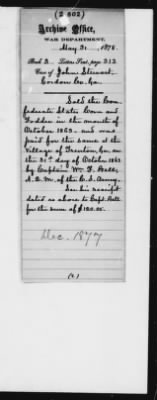 (Z 602)
Archive Office,
WAR DEPARTMENT,
May 31, 1878.
Book 3 Letters Sent, page 313
Case of John Stewart
Gordon Co. Ga.
Sold the Con-
federate States Corn and
Fodder in the month of
October 1863 and was
paid for the same at the
Village of Trenton, Ga. on
the 31st day of October 1863
by Captain Wm. F.
A. Q. M. of the C. S. Army.
See his receipt
dated as above to Capt.
for the sum of $120.00.
Dec. 1877